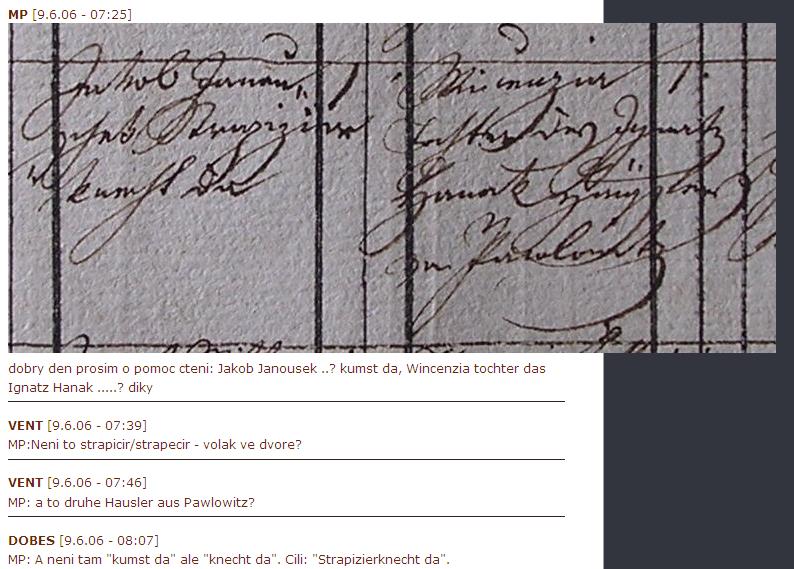 MP [9.6.06 - 07:25]
Jakob Janau„
schek Strapizier
knecht da
Wincenzia
tochter des Ignatz
Hanak Häusler
zu Pawlowitz
dobry den prosim o pomoc cteni: Jakob Janousek ..? kumst da, Wincenzia tochter das
Ignatz Hanak .....? diky
VENT [9.6.06 - 07:39]
MP:Neni to strapicir/strapecir - volak ve dvore?
VENT [9.6.06 - 07:46]
MP: a to druhe Hausler aus Pawlowitz?
DOBES [9.6.06 - 08:07]
MP: A neni tam "kumst da" ale "knecht da". Cili: "Strapizierknecht da".